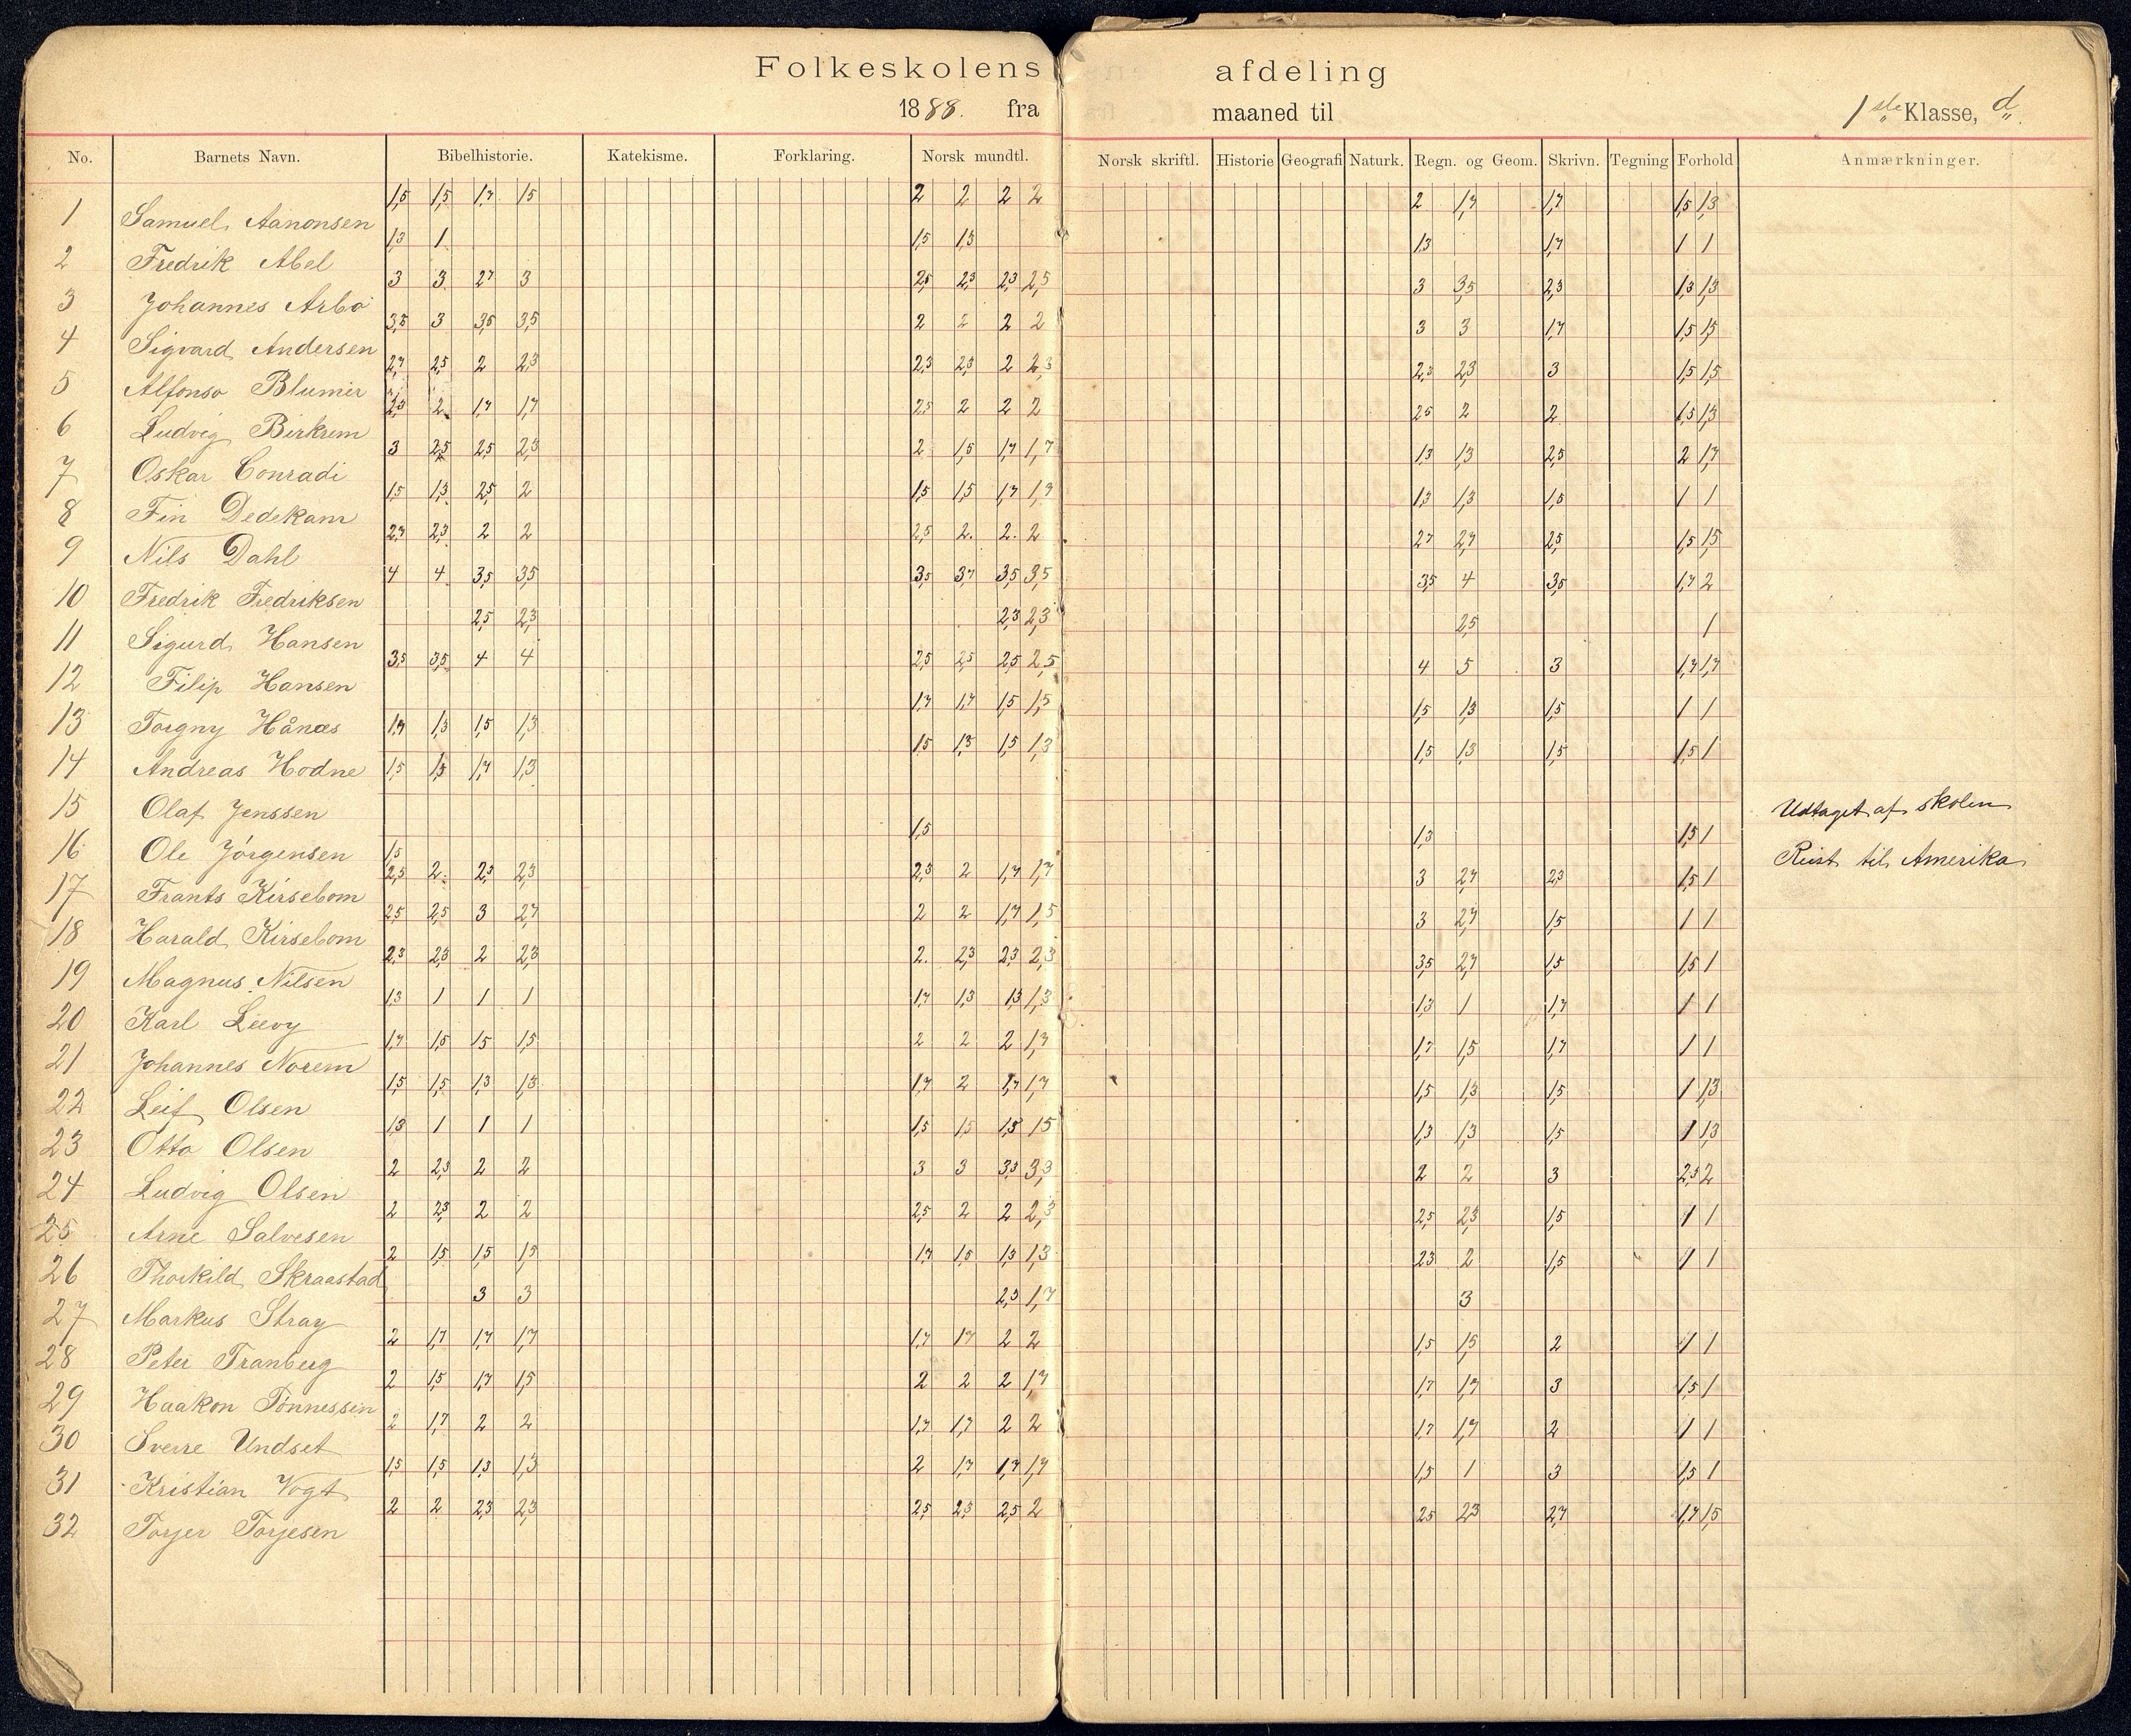 Folkeskolens afdeling
1888. fra maaned til 1ste Klasse, d.
No. Barnets Navn. Bibelhistorie. Katekisme. Forklaring. Norsk mundtl. Norsk skriftl. Historie Geografi Naturk. Regn. og Geom. Skrivn. Tegning Forhold Anmærkninger.
1 Samuel Aanonsen 1,5 1,5 1,7 1,5 2 2 2 2 2 1,7 1,7 1,5 1,3
2 Fredrik Abel 1,3 1 1,5 1,3 1,3 1,7 1 1
3 Johannes Arbo 3 3 2,7 3 2,5 2,3 2,3 2,5 3 3,5 2,3 1,3 1,3
4 Sigvard Andersen 3,5 3 3,5 3,5 2 2 2 2 3 3 1,7 1,5 1,5
5 Alfonso Blumer 2,7 2,5 2 2,3 2,3 2,3 2 2,3 2,3 2,3 3 1,5 1,5
6 Ludvig Birkrem 2,3 2 1,7 1,7 2,5 2 2 2 2,5 2 2 1,5 1,3
7 Oskar Conradi 3 2,5 2,5 2,3 2 1,5 1,7 1,7 1,3 1,3 2,5 2 1,7
8 Fin Dedekam 1,5 1,3 2,5 2 1,5 1,5 1,7 1,7 1,3 1,3 1,5 1 1
9 Nils Dahl 2,7 2,3 2 2 2,5 2 2 2 2,7 2,7 2,5 1,5 1,5
10 Fredrik Fredriksen 4 4 3,5 3,5 3,5 3,7 3,5 3,5 3,5 4 3,5 1,7 2
11 Sigurd Hansen 2,5 2,3 2,3 2,3 2,5 1
12 Filip Hansen 3,5 3,5 4 4 2,5 2,5 2,5 2,5 4 5 3 1,7 1,7
13 Torgny Hånæs 1,7 1,3 1,5 1,3 1,7 1,7 1,5 1,5 1,5 1,3 1,5 1 1
14 Andreas Hodne 1,5 1,5 1,7 1,3 1,5 1,3 1,5 1,3 1,5 1,3 1,5 1,5 1
15 Olaf Jenssen Udtaget af skolen
16 Ole Jörgensen 1,5 1,5 1,3 1,5 1 Reist til Amerika
17 Frants Kirsebom 2,5 2 2,3 2,3 2,3 2 1,7 1,7 3 2,7 2,3 1,5 1
18 Harald Kirsebom 2,5 2,5 3 2,7 2 2 1,7 1,5 3 2,7 1,5 1 1
19 Magnus Nilsen 2,3 2,3 2 2,3 2 2,3 2,3 2,3 3,5 2,7 1,5 1,5 1
20 Karl Leevy 1,3 1 1 1 1,7 1,3 1,3 1,3 1,3 1 1,7 1 1
21 Johannes Norem 1,7 1,5 1,5 1,5 2 2 2 1,7 1,7 1,5 1,7 1 1
22 Leif Olsen 1,5 1,5 1,3 1,3 1,7 2 1,7 1,7 1,5 1,3 1,5 1 1,3
23 Otto Olsen 1,3 1 1 1 1,5 1,5 1,5 1,5 1,3 1,3 1,5 1 1,3
24 Ludvig Olsen 2 2,3 2 2 3 3 3,3 3,3 2 2 3 2,5 2
25 Arne Salvesen 2 2,3 2 2 2,5 2 2 2,3 2,5 2,3 1,5 1 1
26 Thorkild Skraastad 2 1,5 1,5 1,5 1,7 1,5 1,3 1,3 2,3 2 1,5 1 1
27 Markus Stray 3 3 2,3 1,7 3
28 Peter Tranberg 2 1,7 1,7 1,7 1,7 1,7 2 2 1,5 1,5 2 1 1
29 Haakon Tönnessen 2 1,5 1,7 1,5 2 2 2 1,7 1,7 1,7 3 1,5 1
30 Sverre Undset 2 1,7 2 2 1,7 1,7 2 2 1,7 1,7 2 1 1
31 Kristian Vogt 1,5 1,5 1,3 1,3 2 1,7 1,7 1,7 1,5 1 3 1,5 1
32 Torjer Torjesen 2 2 2,3 2,3 2,5 2,3 2,5 2 2,5 2,3 2,7 1,7 1,5